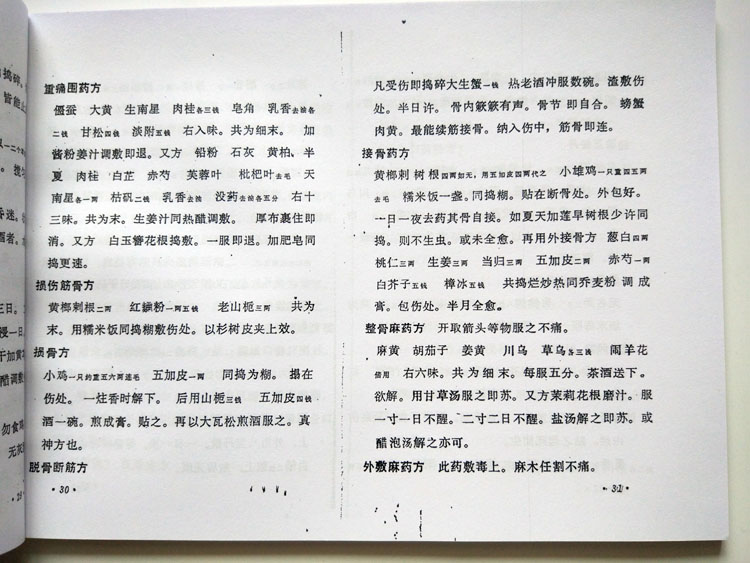 捣碎
皆能止
重痛围药方
僵蚕 大黄 生南星 肉桂各三钱 皂角 乳香去油各
二钱 甘松四钱 淡附五钱 右入昧。共为细末。 加
酱粉姜汁调敷即退。又方 铅粉 石灰 黄柏、半
夏 肉桂 白芷 赤芍 芙蓉叶 枇杷叶去毛 天
南星各一两 枯矾二钱 乳香去油 没药去油各五分 右十
三味。共为末。生姜汁同热醋调敷。 厚布裹住即
消。又方 白玉簪花根捣敷。一服即退。加肥皂同
捣更速。
损伤筋骨方
黄榔刺根二两 红麯粉一两五钱 老山栀三两 共为
末。用糯米饭同捣糊敷伤处。以杉树皮夹上效。
损骨方
小鸡一只约重五六两连毛 五加皮一两 同捣为糊。 搨在
伤处。一炷香时解下。 后用山栀三钱 五加皮四钱
酒一碗。煎成膏。贴之。再以大瓦松煎酒服之。真
神方也。
脱骨断筋方
·30·
凡受伤即捣碎大生蟹一钱 热老酒冲服数碗。渣敷伤
处。半日许。骨内簌簌有声。骨节即自合。螃蟹
肉黄。最能续筋接骨。纳入伤中，筋骨即连。
接骨药方
黄榔刺树根四两如无，用五加皮四两代之 小雄鸡一只重四五两
去毛 糯米饭一盏。同捣糊。贴在断骨处。外包好。
一日一夜去药其骨自接。如夏天加莲早树根少许同
捣。则不生虫。或未全愈。再用外接骨方 葱白四两
桃仁三两 生姜三两 当归三两 五加皮二两 赤芍一两
白芥子五钱 樟冰五钱 共捣烂炒热同乔麦粉调成
膏。包伤处。半月全愈。
整骨麻药方 开取箭头等物服之不痛。
麻黄 胡茄子 姜黄 川乌 草乌各三钱 闹羊花
倍用 右六味。共为细末。每服五分。茶酒送下。
欲解。用甘草汤服之即苏。又方茉莉花根磨汁。服
一寸一日不醒。二寸二日不醒。盐汤解之即苏。或
醋泡汤解之亦可。
外敷麻药方 此药敷毒上。麻木任割不痛。
·31·